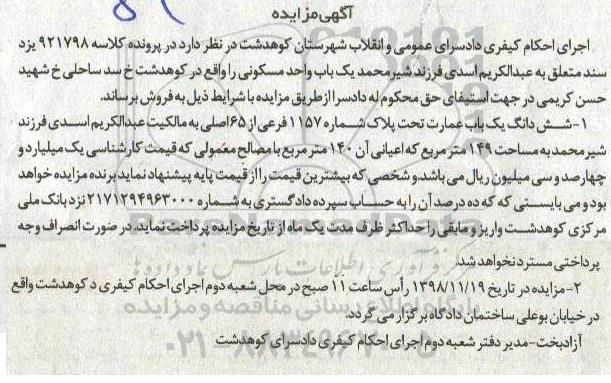 آگهی مزایده
اجرای احکام کیفری دادسرای عمومی و انقلاب شهرستان کوهدشت در نظر دارد در پرونده کلاسه ۹۲۱۷۹۸ یزد
سند متعلق به عبدالکریم اسدی فرزند شیرمحمد یک باب واحد مسکونی را واقع در کوهدشت خ سد ساحلی خ شهید
حسن کریمی در جهت استیفای حق محکوم له دادسرا از طریق مزایده با شرایط ذیل به فروش برساند.
۱-شش دانگ یک باب عمارت تحت پلاک شماره ۱۱۵۷ فرعی از ۶۵ اصلی به مالکیت عبدالکریم اسدی فرزند
شیرمحمد به مساحت ۱۴۹ متر مربع که اعیانی آن ۱۴۰ متر مربع با مصالح معمولی که قیمت کارشناسی یک میلیارد و
چهارصد و سی میلیون ریال می باشد و شخصی که بیشترین قیمت را از قیمت پایه پیشنهاد نماید برنده مزایده خواهد
بود و می بایستی که که ده درصد آن را به حساب سپرده دادگستری به شماره ۲۱۷۱۲۹۴۹۶۳۰۰۰ نزد بانک ملی
مرکزی کوهدشت واریز و مابقی را حداکثر ظرف مدت یک ماه از تاریخ مزایده پرداخت نماید. در صورت انصراف وجه
پرداختی مسترد نخواهد شد.
۲-مزایده در تاریخ ۱۳۹۸/۱۱/۱۹ رأس ساعت ۱۱ صبح در محل شعبه دوم اجرای احکام کیفری د کوهدشت واقع
در خیابان بوعلی ساختمان دادگاه برگزار می گردد.
آزادبخت-مدیر دفتر شعبه دوم اجرای احکام کیفری دادسرای کوهدشت